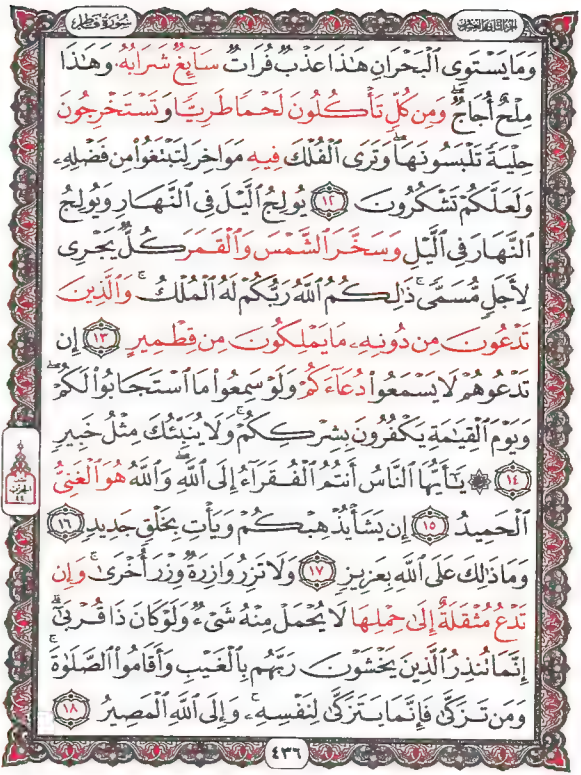 سورة فاطر
الجزء الثاني والعشرون
وَمَا يَسْتَوِي ٱلْبَحْرَانِ هَٰذَا عَذْبٌ فُرَاتٌ سَآئِغٌ شَرَابُهُۥ وَهَٰذَا
مِلْحٌ أُجَاجٌ ۖ وَمِن كُلٍّ تَأْكُلُونَ لَحْمًا طَرِيًّا وَتَسْتَخْرِجُونَ
حِلْيَةً تَلْبَسُونَهَا ۖ وَتَرَى ٱلْفُلْكَ فِيهِ مَوَاخِرَ لِتَبْتَغُوا۟ مِن فَضْلِهِۦ
وَلَعَلَّكُمْ تَشْكُرُونَ ١٢ يُولِجُ ٱلَّيْلَ فِى ٱلنَّهَارِ وَيُولِجُ
ٱلنَّهَارَ فِى ٱلَّيْلِ وَسَخَّرَ ٱلشَّمْسَ وَٱلْقَمَرَ كُلٌّ يَجْرِى
لِأَجَلٍ مُّسَمًّى ۚ ذَٰلِكُمُ ٱللَّهُ رَبُّكُمْ لَهُ ٱلْمُلْكُ ۚ وَٱلَّذِينَ
تَدْعُونَ مِن دُونِهِۦ مَا يَمْلِكُونَ مِن قِطْمِيرٍ ١٣ إِن
تَدْعُوهُمْ لَا يَسْمَعُوا۟ دُعَآءَكُمْ وَلَوْ سَمِعُوا۟ مَا ٱسْتَجَابُوا۟ لَكُمْ ۖ
وَيَوْمَ ٱلْقِيَٰمَةِ يَكْفُرُونَ بِشِرْكِكُمْ ۚ وَلَا يُنَبِّئُكَ مِثْلُ خَبِيرٍ
١٤ ۞ يَٰٓأَيُّهَا ٱلنَّاسُ أَنتُمُ ٱلْفُقَرَآءُ إِلَى ٱللَّهِ ۖ وَٱللَّهُ هُوَ ٱلْغَنِىُّ
ٱلْحَمِيدُ ١٥ إِن يَشَأْ يُذْهِبْكُمْ وَيَأْتِ بِخَلْقٍ جَدِيدٍ ١٦
وَمَا ذَٰلِكَ عَلَى ٱللَّهِ بِعَزِيزٍ ١٧ وَلَا تَزِرُ وَازِرَةٌ وِزْرَ أُخْرَىٰ ۚ وَإِن
تَدْعُ مُثْقَلَةٌ إِلَىٰ حِمْلِهَا لَا يُحْمَلْ مِنْهُ شَىْءٌ وَلَوْ كَانَ ذَا قُرْبَىٰٓ ۗ
إِنَّمَا تُنذِرُ ٱلَّذِينَ يَخْشَوْنَ رَبَّهُم بِٱلْغَيْبِ وَأَقَامُوا۟ ٱلصَّلَوٰةَ ۚ
وَمَن تَزَكَّىٰ فَإِنَّمَا يَتَزَكَّىٰ لِنَفْسِهِۦ ۚ وَإِلَى ٱللَّهِ ٱلْمَصِيرُ ١٨
٤٣٦